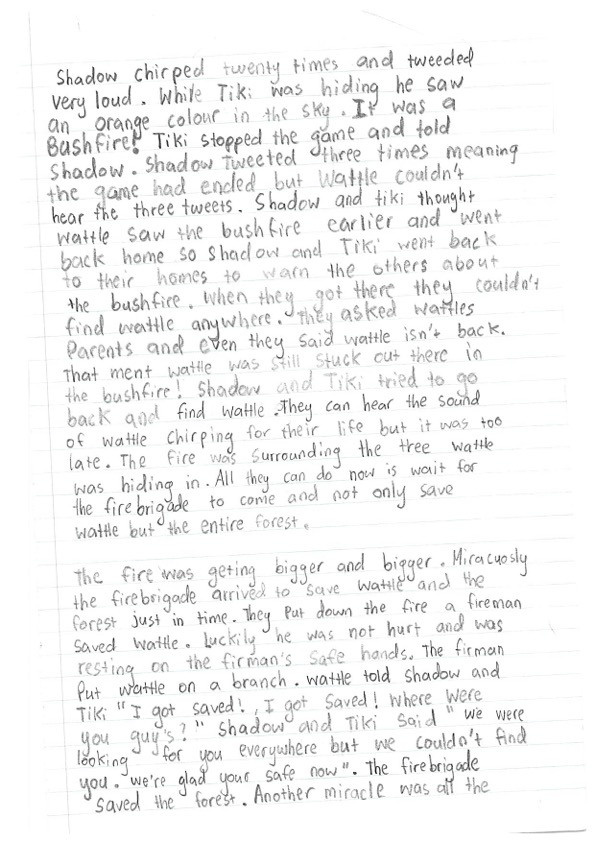 Shadow chirped twenty times and tweeded
very loud. While Tiki was hiding he saw
an orange colour in the sky. It was a
Bushfire! Tiki stopped the game and told
Shadow. Shadow Tweeted three times meaning
the game had ended but Wattle couldn't
hear the three tweets. Shadow and tiki thought
wattle saw the bushfire earlier and went
back home so Shadow and Tiki went back
to their homes to warn the others about
the bushfire. When they got there they couldn't
find wattle anywhere. They asked wattles
Parents and even they said wattle isn't back.
That ment wattle was still stuck out there in
the bushfire! Shadow and Tiki tried to go
back and find wattle. They can hear the sound
of wattle chirping for their life but it was too
late. The fire was surrounding the tree wattle
was hiding in. All they can do now is wait for
the firebrigade to come and not only save
wattle but the entire forest.
The fire was geting bigger and bigger. Miracuosly
the firebrigade arrived to save wattle and the
forest just in time. They put down the fire a fireman
saved wattle. Luckily he was not hurt and was
resting on the firman's safe hands. The firman
Put wattle on a branch. wattle told shadow and
Tiki "I got saved!, I got saved! Where were
you guy's?" Shadow and Tiki said "we were
looking for you everywhere but we couldn't find
you. we're glad your safe now". The firebrigade
saved the forest. Another miracle was all the